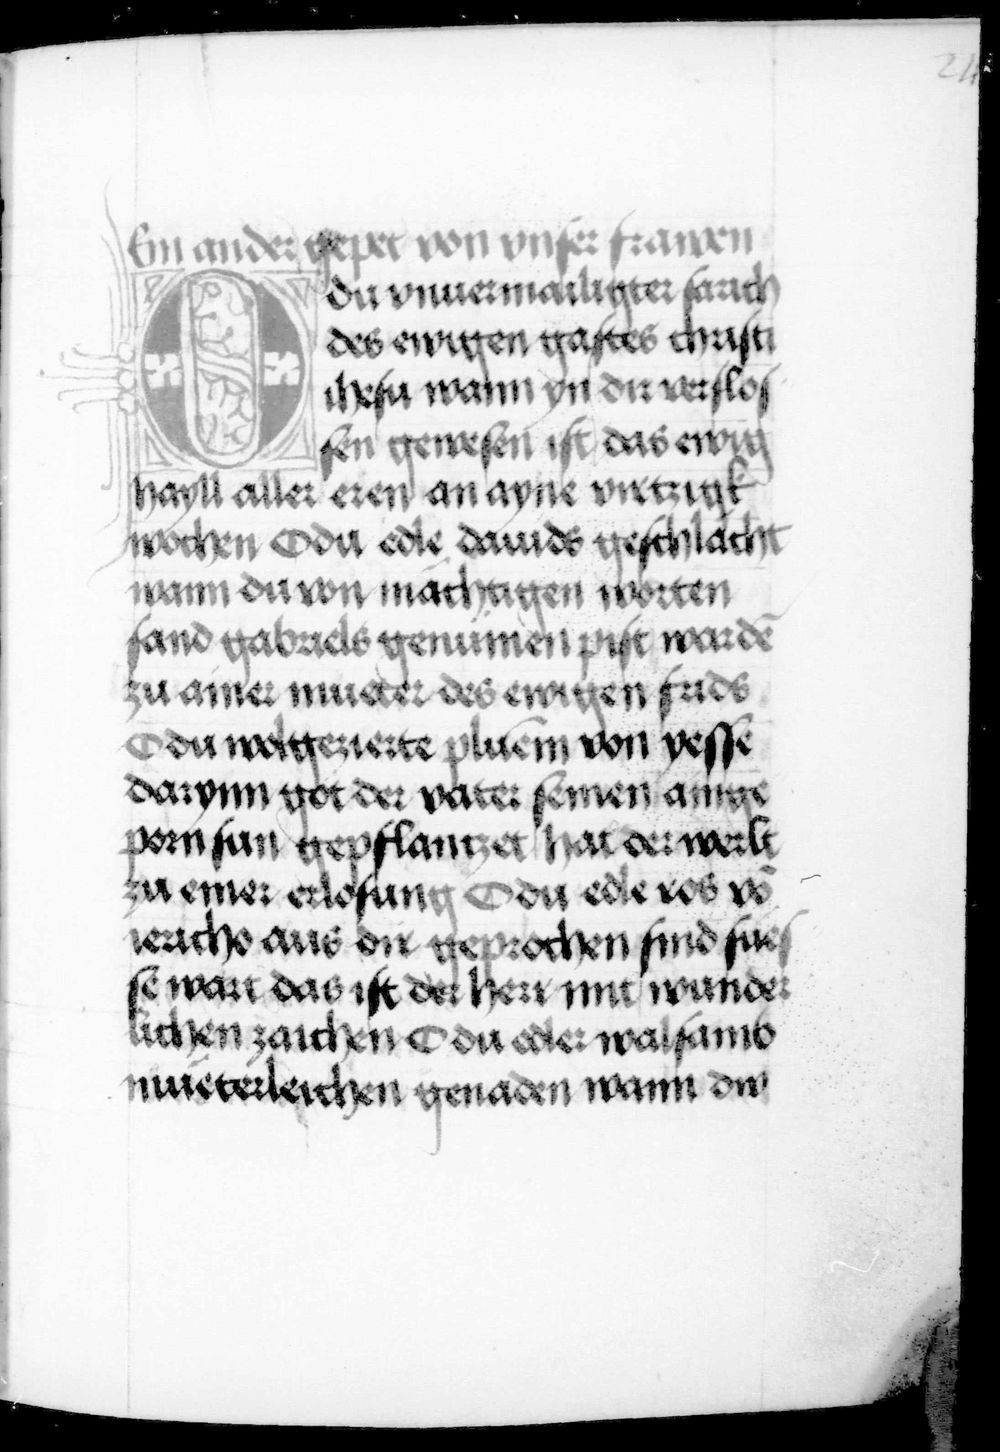 24
Ein ander gepet von vnser frawen
O du vnuermailigter sarich
des ewigen gastes christi
ihesu wann yn dir verslos
sen gewesen ist das ewig
hayll aller eren an ayne virtzigk
wochen O du edle dauids geschlächt
wann du von mächtigen worten
sand gabriels genumen pist wardē
zu ainer mueter des ewigen frids
O du wolgezierte pluem von yesse
darynn got der vater seinen ainge
porn sun gepflantzet hat der werlt
zu einer erlosung O du edle ros vō
iericho aus dir geprochen sind sues
se wart das ist der herr mit wunder
lichen zaichen O du edler walsamb
mueterleichen genaden wann diw